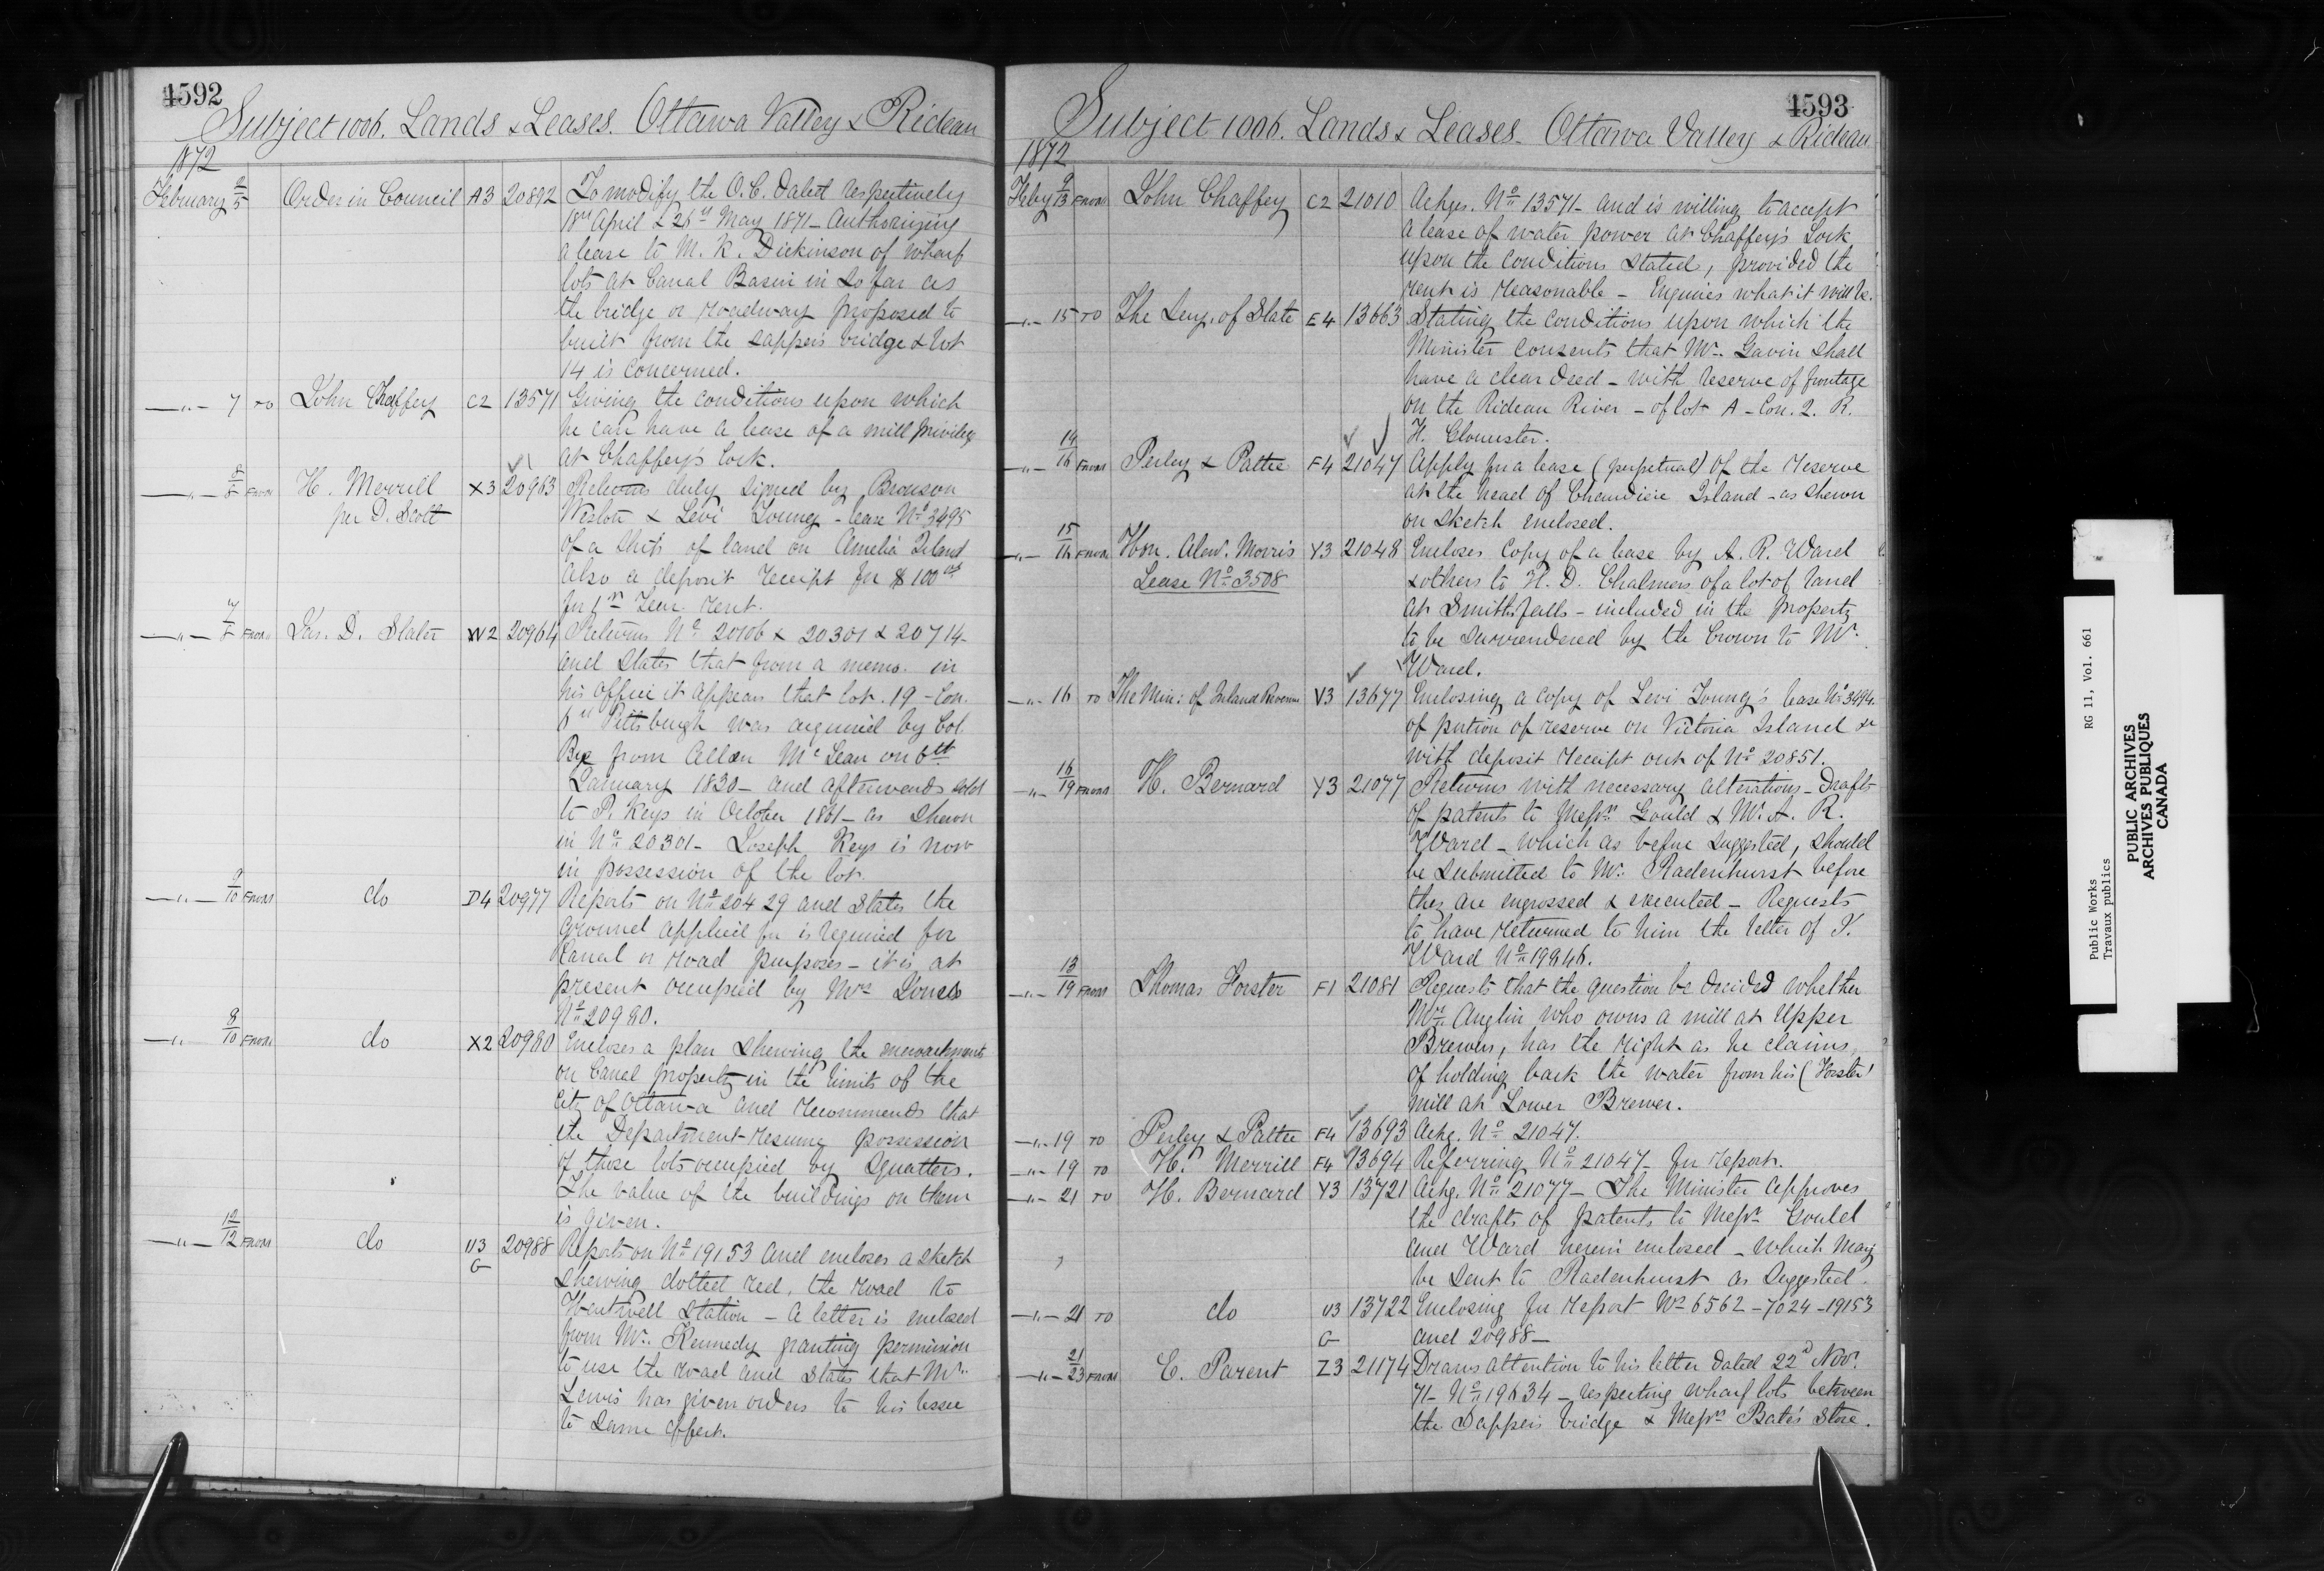 4592
Subject 1006. Lands & Leases. Ottawa Valley & Rideau
1872
February 2/5 Order in Council A3 20892 To modify the O.C. dated respectively
18th April & 26th May 1871 - Authorizing
a lease to M. K. Dickinson of wharf
lots at Canal Basin in so far as
the bridge or roadway proposed to
built from the sappers bridge & lot
14 is concerned.
—"— 7 TO John Chaffey C2 13571 Giving the conditions upon which
he can have a lease of a mill privilege
at Chaffey's Lock.
—"— 8 FROM H. Merrill X3 20963 Returns duly signed by Bronson
per D. Scott Weston & Levi Young - lease No 3495
of a strip of land on Amelia Island
also a deposit receipt for $100
for 1st Year rent.
—"— 7/8 FROM Jas. D. Slater W2 20964 Returns No 20106 & 20301 & 20714
and states that from a memo. in
his office it appears that lot. 19 - Con.
6th Pittsburgh was acquired by Col.
By from Allan McLean on 6th
January 1830 - and afterwards sold
to P. Keys in October 1861 - as shewn
in No 20301 - Joseph Keys is now
in possession of the lot.
—"— 9/10 FROM do D4 20977 Reports on No 20429 and states the
ground applied for is required for
Canal or road purposes - it is at
present occupied by Mrs Jones
No 20980.
—"— 8/10 FROM do X2 20980 Encloses a plan shewing the encroachments
on Canal property in the limits of the
City of Ottawa and recommends that
the Department resume possession
of those lots occupied by squatters.
The value of the buildings on them
is given.
—"— 12/12 FROM do U3 20988 Reports on No 19153 and encloses a sketch
G shewing dotted red, the road to
Hartwell Station - a letter is enclosed
from Mr. Kennedy granting permission
to use the road and states that Mr.
Lewis has given orders to his lessee
to same effect.
4593
Subject 1006. Lands & Leases - Ottawa Valley & Rideau
1872
Feby 9/13 FROM John Chaffey C2 21010 Ackges. No 13571 - and is willing to accept
a lease of water power at Chaffey's Lock
upon the conditions stated, provided the
rent is reasonable - Enquires what it will be.
—"— 15 TO The Secy. of State E4 13663 Stating the conditions upon which the
Minister consents that Mr. Gavin shall
have a clear deed - with reserve of frontage
on the Rideau River - of lot A - Con. 2. R.
F. Gloucester.
—"— 14/16 FROM Perley & Pattee F4 21047 Apply for a lease (perpetual) of the reserve
at the head of Chaudiere Island - as shewn
on sketch enclosed.
—"— 15/16 FROM Hon. Alexr. Morris Y3 21048 Encloses copy of a lease by A. R. Ward
Lease No 3508 & others to H. D. Chalmers of a lot of land
at Smiths falls - included in the property
to be surrendered by the Crown to Mr.
Ward.
—"— 16 TO The Min: of Inland Revenue V3 13677 Enclosing a copy of Levi Young's lease No 3494
of portion of reserve on Victoria Island &
with deposit receipt out of No 20851.
—"— 16/19 FROM H. Bernard Y3 21077 Returns with necessary alterations - drafts
of patents to Messrs. Gould & Mr. A. R.
Ward - which as before suggested, should
be submitted to Mr. Radenhurst before
they are engrossed & executed - Requests
to have returned to him the letter of
Ward No 19846.
—"— 13/19 FROM Thomas Forster F1 21081 Requests that the question be decided whether
Mr. Anglin who owns a mill at Upper
Brewers, has the right as he claims,
of holding back the water from his (Forster)
mill at Lower Brewer.
—"— 19 TO Perley & Pattee F4 13693 Ackg. No 21047.
—"— 19 TO H. Merrill F4 13694 Referring No 21047 - for report.
—"— 21 TO H. Bernard Y3 13721 Ackg. No 21077 - The Minister approves
the drafts of patents to Messrs Gould
and Ward herein enclosed - which may
be sent to Radenhurst as suggested.
—"— 21 TO do U3 13722 Enclosing for report No 6562 - 7024 - 19153
G and 20988 -
—"— 21/23 FROM E. Parent Z3 21174 Draws attention to his letter dated 22d Nov.
71 - No 19634 - respecting wharf lots between
the Sappers bridge & Messrs Bate's Store.
Public Works RG 11, Vol. 661
Travaux publics
PUBLIC ARCHIVES
ARCHIVES PUBLIQUES
CANADA